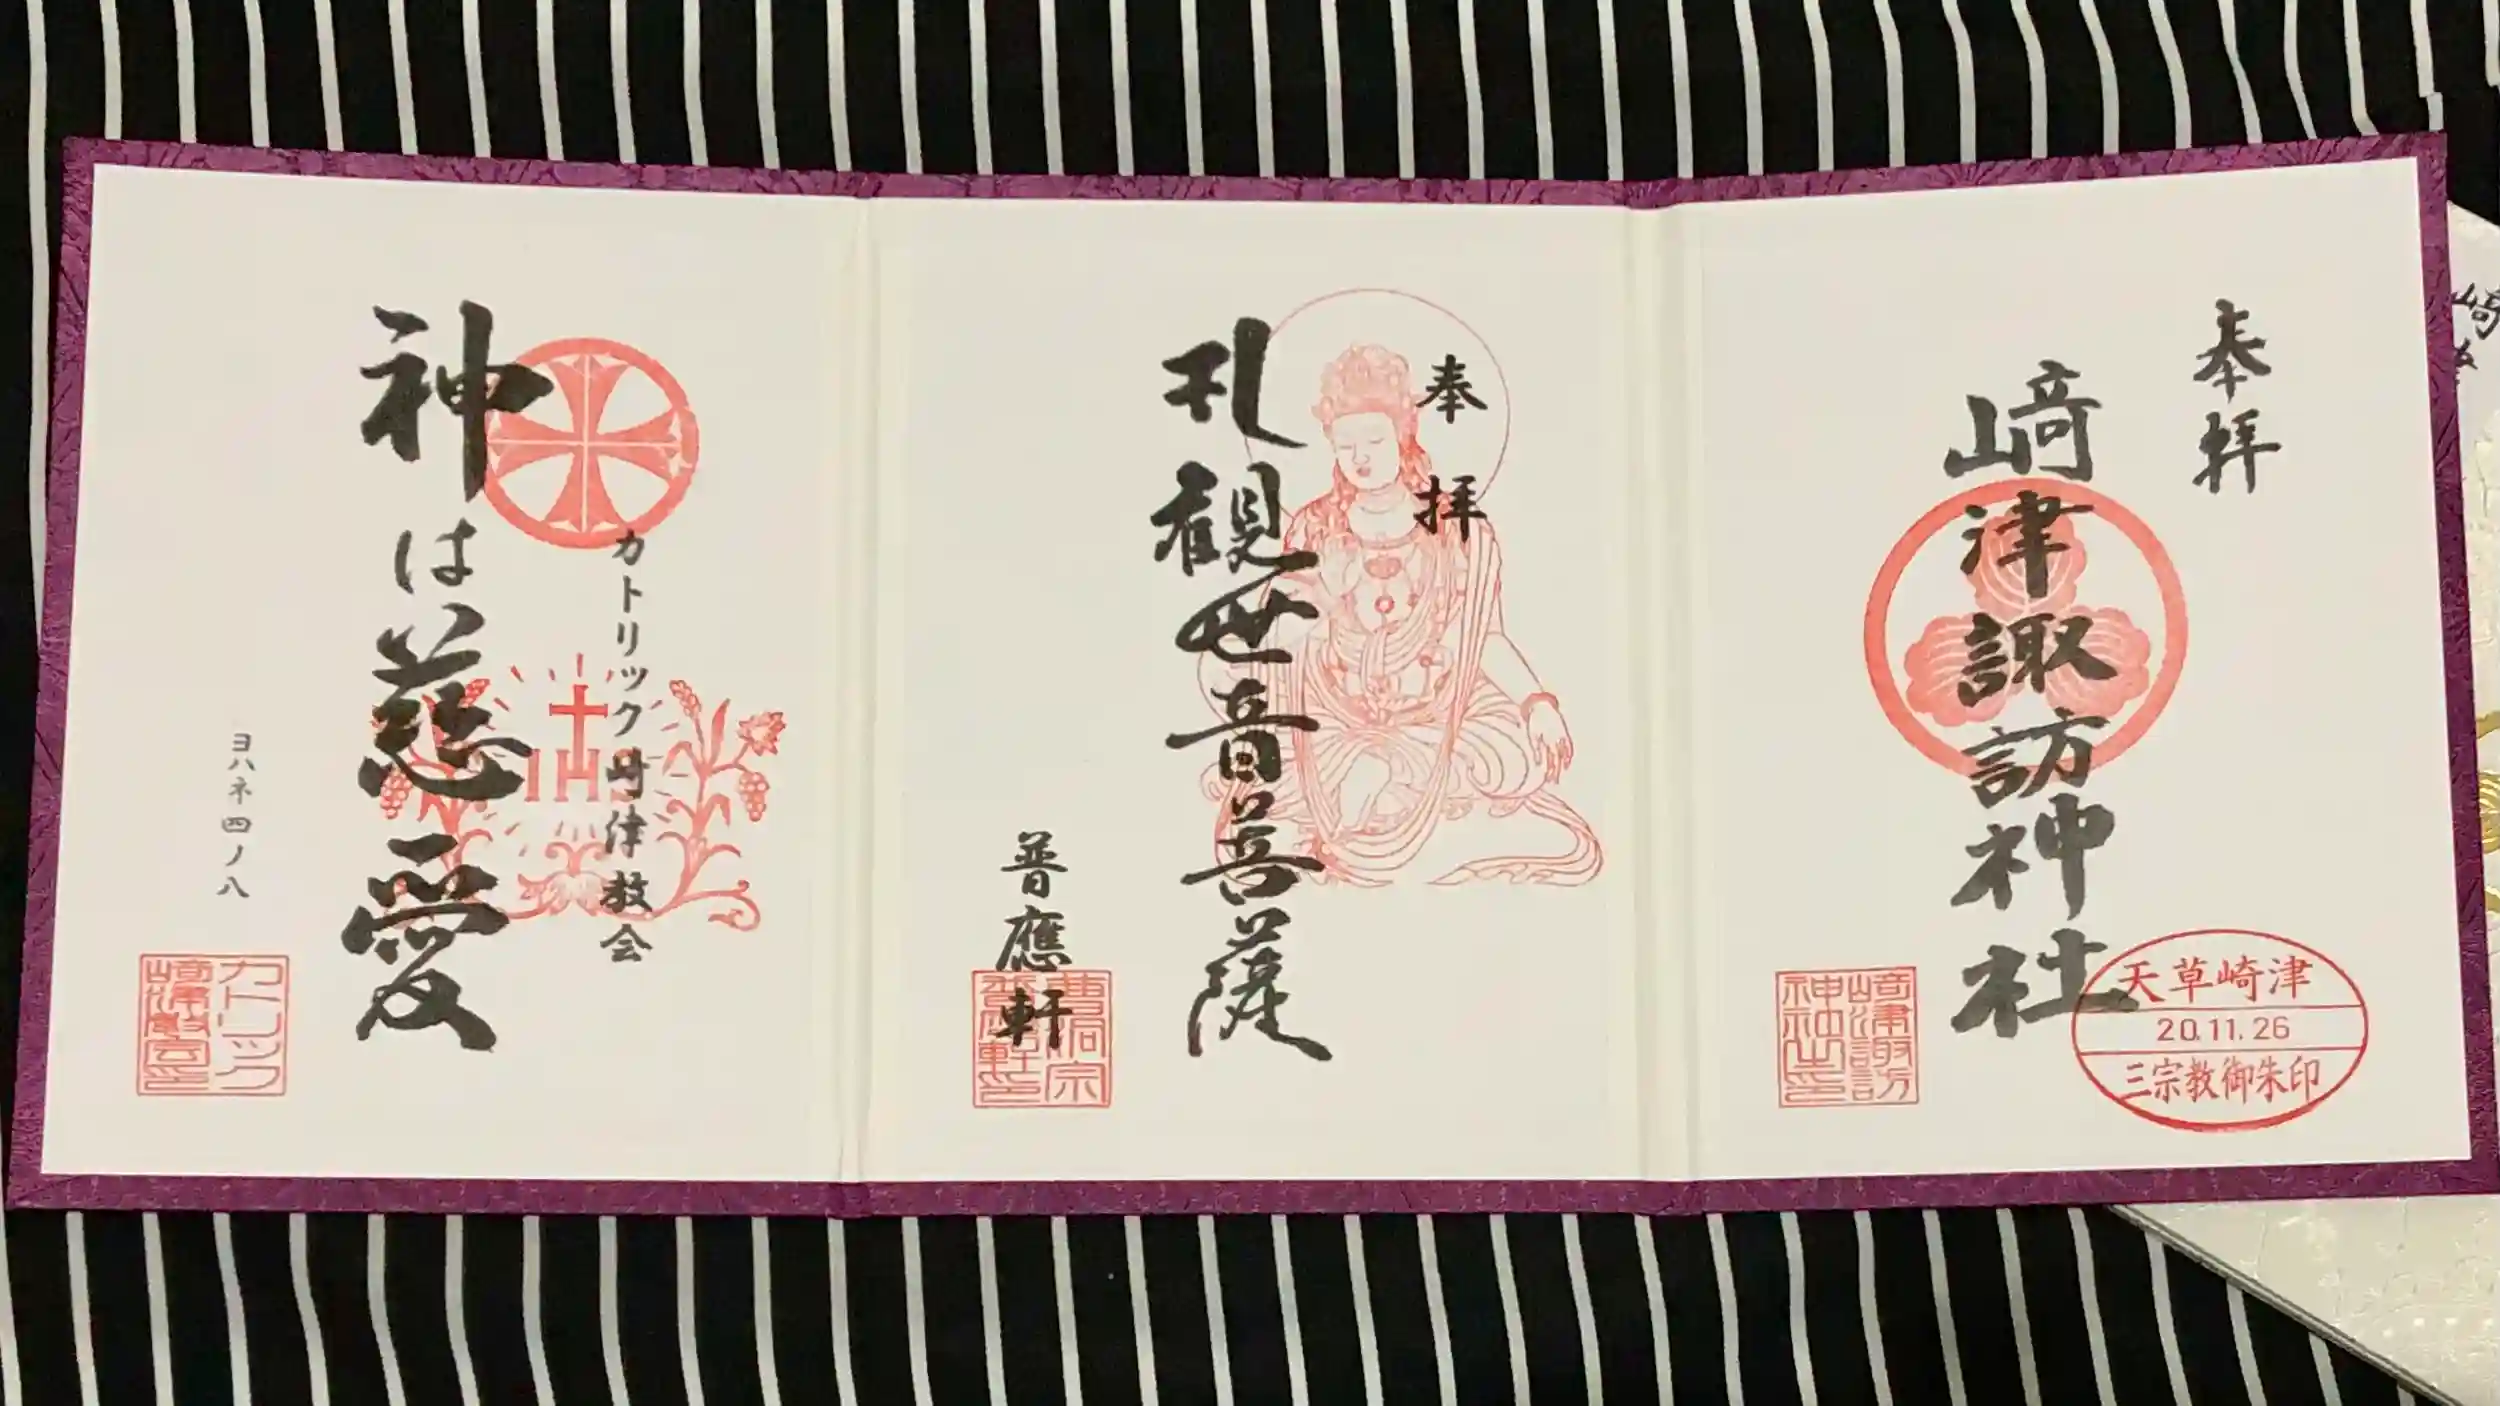 奉拝
﨑津諏訪神社
天草崎津
20.11.26
三宗教御朱印
﨑津諏訪
神社之印
奉拝
礼観世音菩薩
普應軒
曹洞宗
普應軒印
カトリック﨑津教会
IHS
神は慈愛
ヨハネ四ノ八
カトリック
﨑津教会印